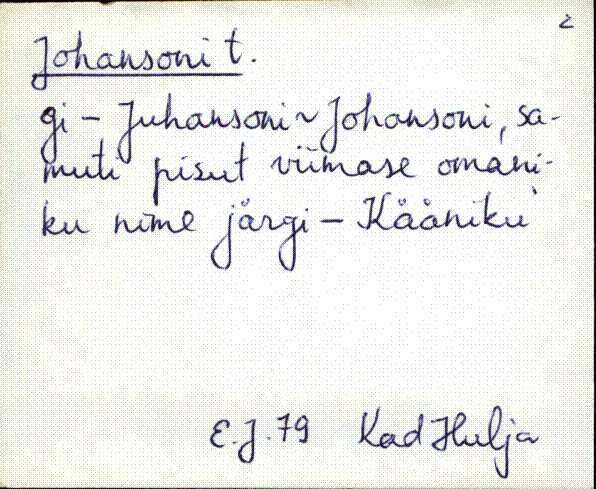 2
Johansoni t.
gi – Juhansoni ~ Johansoni, sa-
muti pisut viimase omani-
ku nime järgi – Kääniku
E.J. 79 Kad Hulja